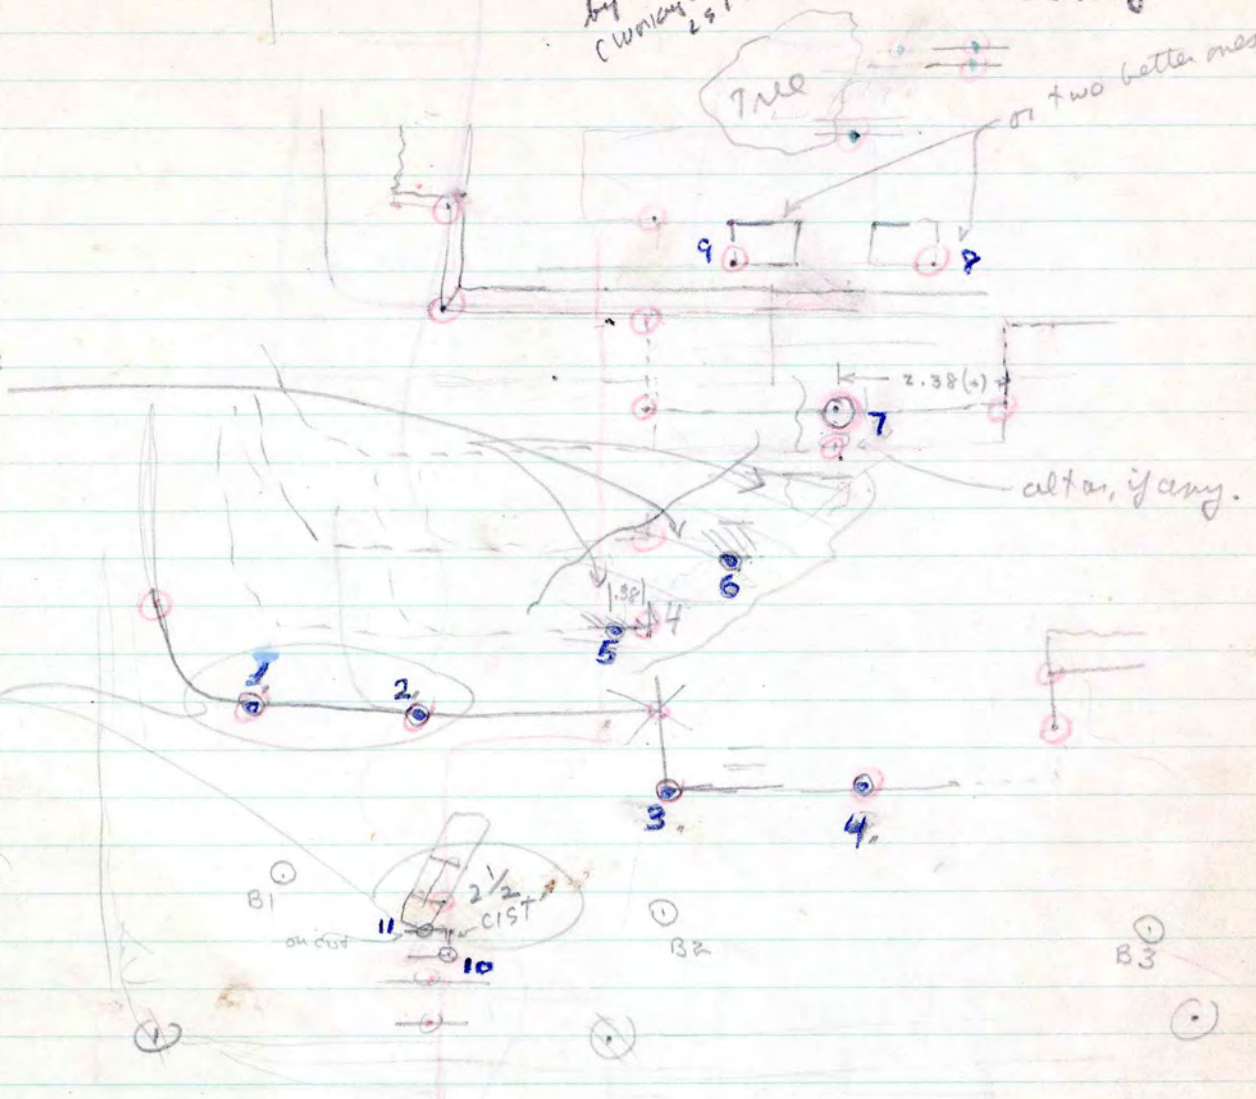 by
(Working
Tree
or two better ones
9
8
2.38(0)
7
altar, if any.
6
.38
4
5
1
2.
3.
4.
B1
2 1/2
CIST
11
10
B2
B3